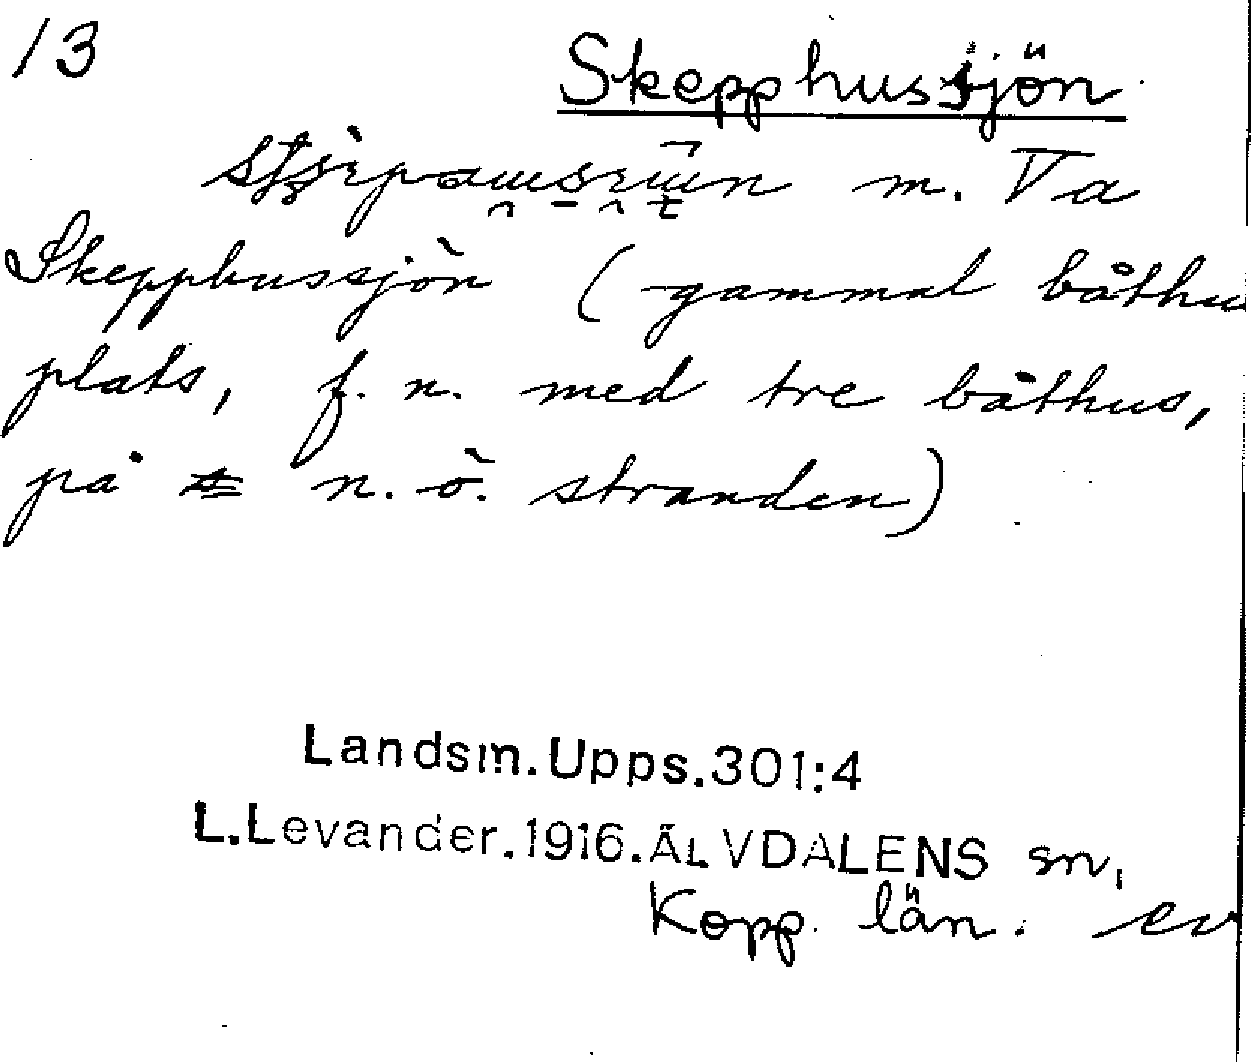 13
Skepphussjön
m. Va
Skepphussjön (gammal båthus
plats, f. n. med tre båthus,
på n. ö. stranden)
Landsm. Upps. 301:4
L. Levander. 1916. ÄLVDALENS sn,
Kopp. län.